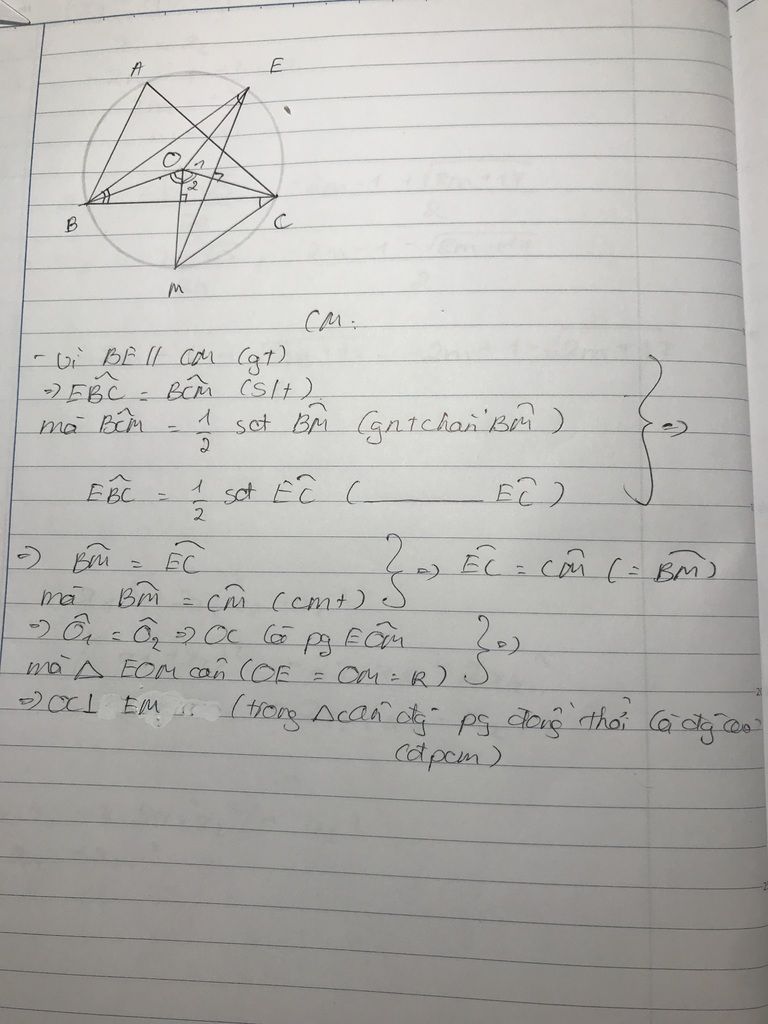 A
E
O
1
2
B
C
M
CM:
- Vì BE // CM (gt)
=> EBC^ = BCM^ (slt)
mà BCM^ = 1/2 sđt BM^ (gnt chắn BM^)
EBC^ = 1/2 sđt EC^ (_______ EC^)
} =>
=> BM^ = EC^
mà BM^ = CM^ (cmt)
} => EC^ = CM^ (= BM^)
=> Ô1 = Ô2 => OC là pg EÔM
mà △ EOM cân (OE = OM = R)
} =>
=> OC ⊥ EM (trong △ cân đg pg đồng thời là đg cao)
(đpcm)